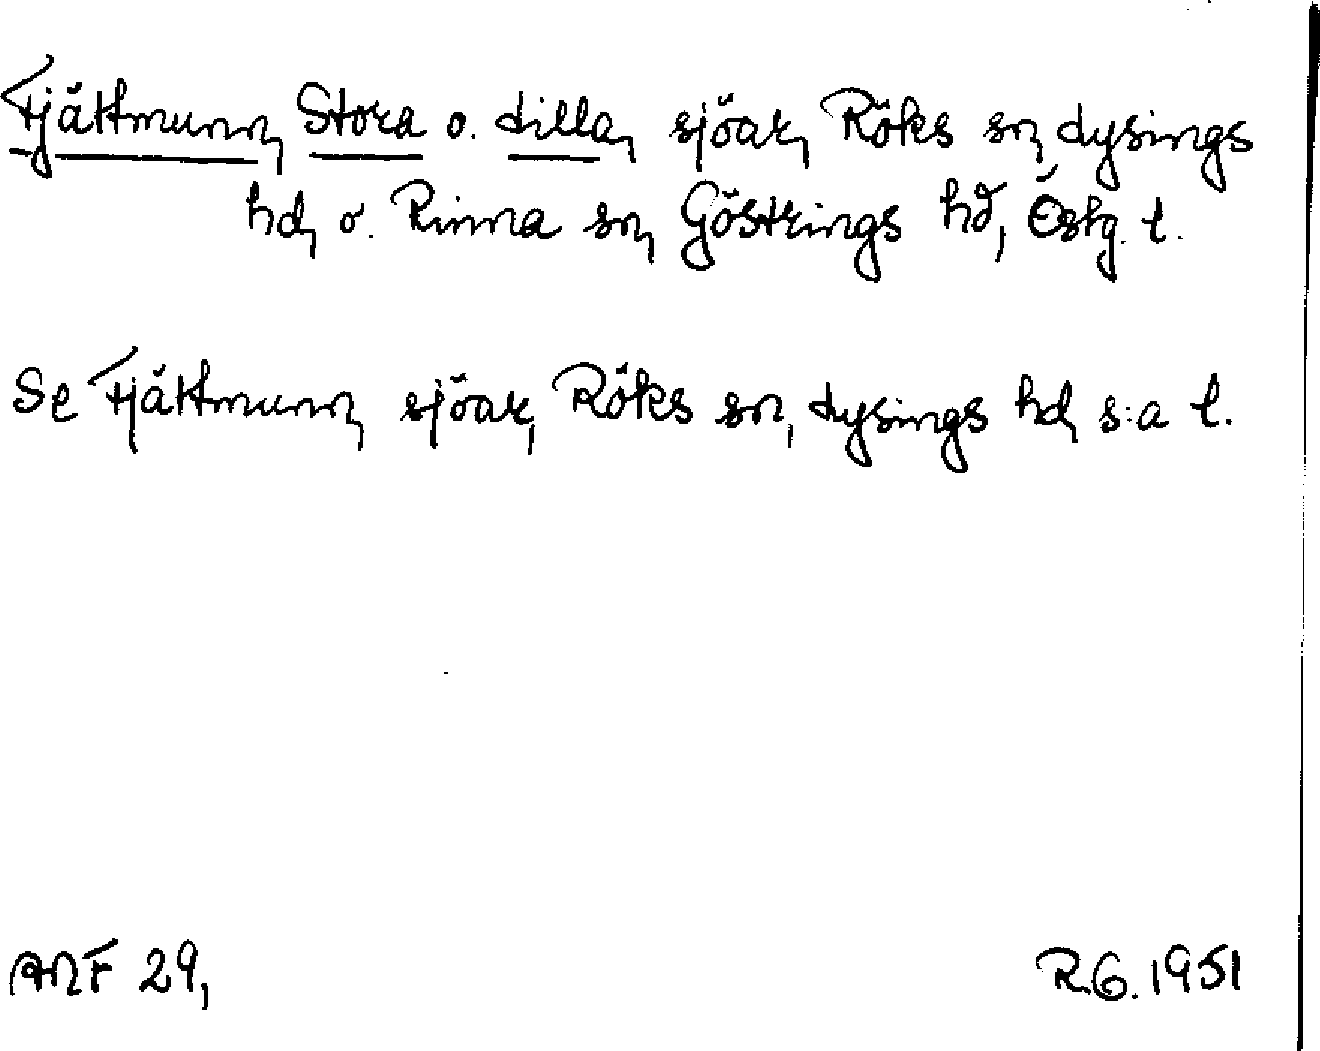 Fjättmunn, Stora o. Lilla, sjöar, Röks sn, Lysings
hd, o. Rinna sn, Göstrings hd, Östg. l.
Se Fjättmunn, sjöar, Röks sn, Lysings hd, s:a l.
ANF 29,
R.G. 1951